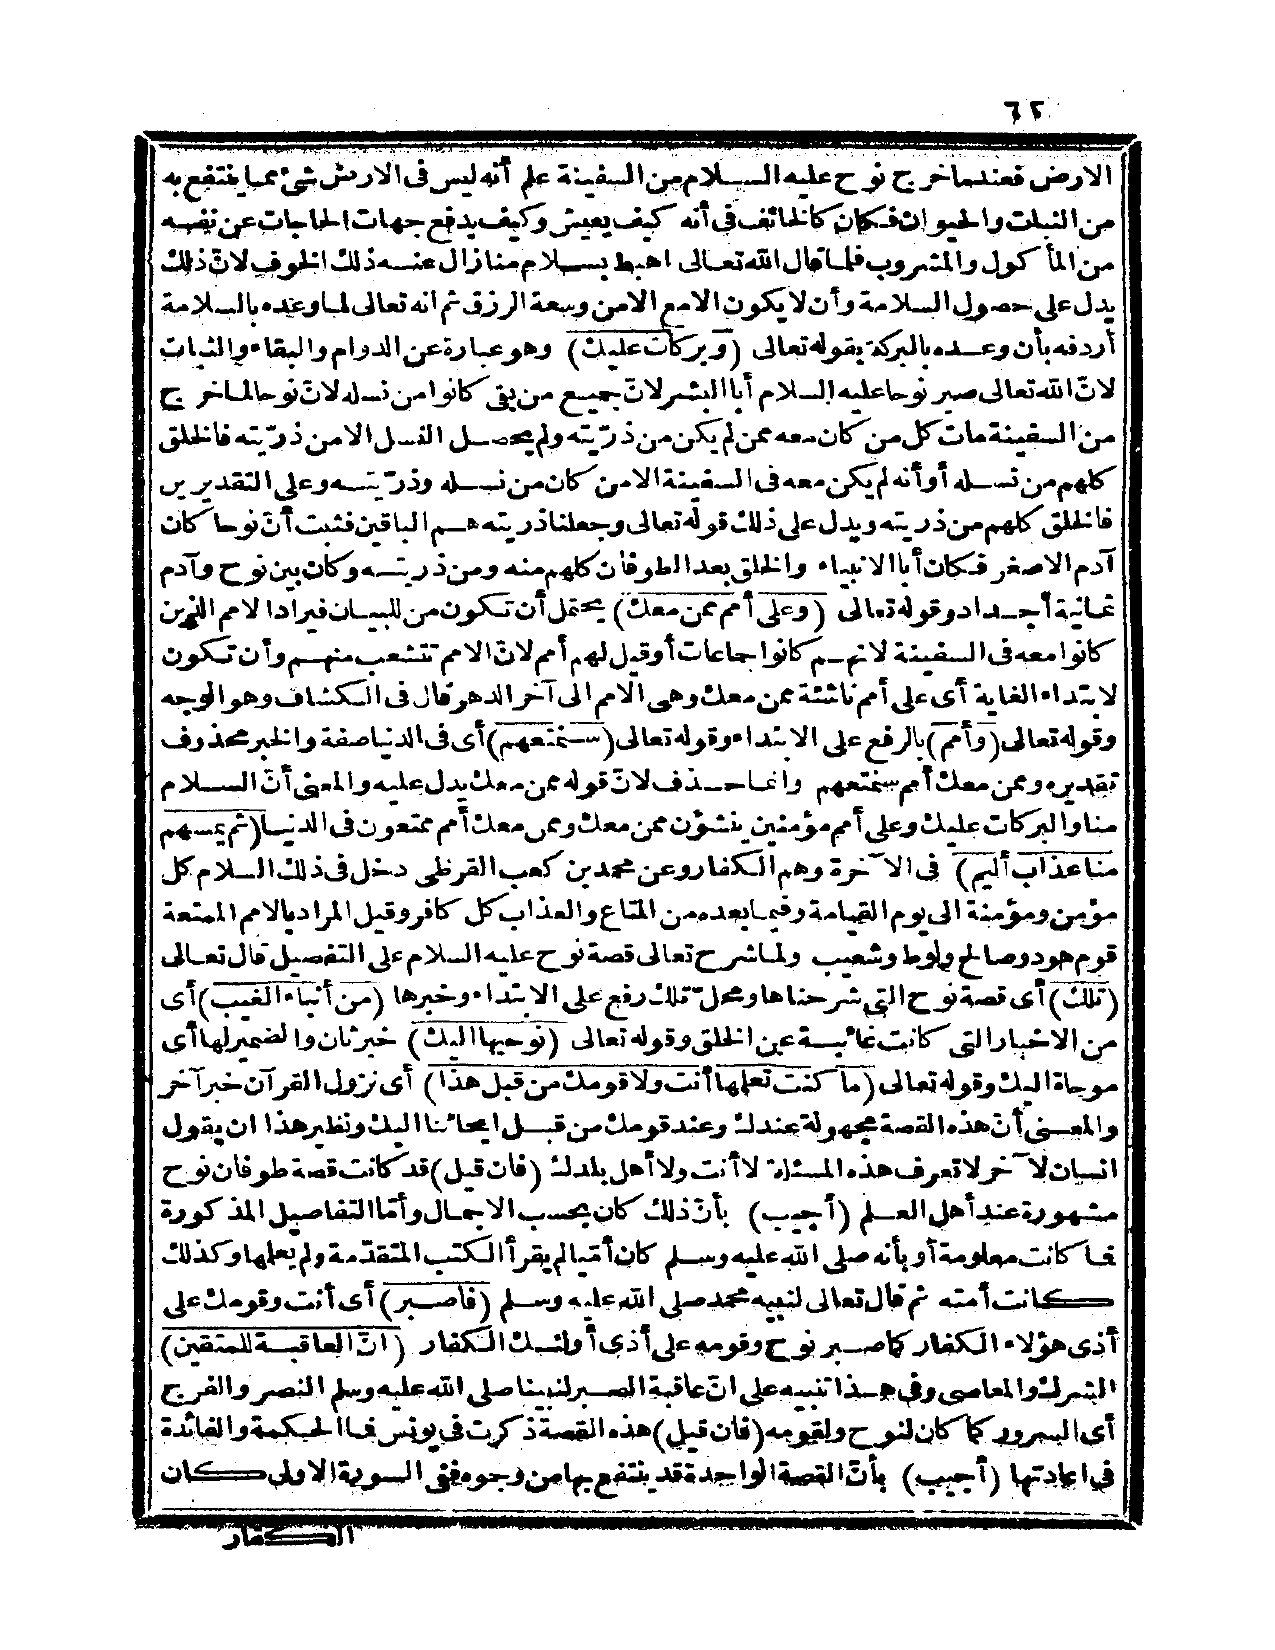 ٦٢
الارض فعندما خرج نوح عليه السلام من السفينة علم أنه ليس فى الارض شئ مما ينتفع به
من النبات والحيوان فكان كالخائف فى أنه كيف يعيش وكيف يدفع جهات الحاجات عن نفسه
من المأكول والمشروب فلما قال الله تعالى اهبط بسلام منا زال عنه ذلك الخوف لان ذلك
يدل على حصول السلامة وأن لا يكون الا مع الامن وسعة الرزق ثم انه تعالى لما وعده بالسلامة
أردفه بأن وعده بالبركة بقوله تعالى (وبركات عليك) وهو عبارة عن الدوام والبقاء والثبات
لانّ الله تعالى صير نوحا عليه السلام أبا البشر لانّ جميع من بقى كانوا من نسله لانّ نوحا لما خرج
من السفينة مات كل من كان معه ممن لم يكن من ذرّيته ولم يحصل النسل الا من ذرّيته فالخلق
كلهم من نسله أو أنه لم يكن معه فى السفينة الا من كان من نسله وذرّيته وعلى التقديرين
فالخلق كلهم من ذريته ويدل على ذلك قوله تعالى وجعلنا ذريته هم الباقين فثبت أنّ نوحا كان
آدم الاصغر فكان أبا الانبياء والخلق بعد الطوفان كلهم منه ومن ذريته وكان بين نوح وآدم
ثمانية أجداد وقوله تعالى (وعلى أمم ممن معك) يحتمل أن تكون من للبيان فيراد الامم الذين
كانوا معه فى السفينة لانهم كانوا جماعات أو قيل لهم أمم لانّ الامم تتشعب منهم وأن تكون
لابتداء الغاية أى على أمم ناشئة ممن معك وهى الامم الى آخر الدهر قال فى الكشاف وهو الوجه
وقوله تعالى (وأمم) بالرفع على الابتداء وقوله تعالى (سنمتعهم) أى فى الدنيا صفة والخبر محذوف
تقديره وممن معك أمم سنمتعهم وانما حذف لانّ قوله ممن معك يدل عليه والمعنى أنّ السلام
منا والبركات عليك وعلى أمم مؤمنين ينشؤن ممن معك وممن معك أمم ممتعون فى الدنيا (ثم يمسهم
منا عذاب أليم) فى الآخرة وهم الكفار وعن محمد بن كعب القرظى دخل فى ذلك السلام كل
مؤمن ومؤمنة الى يوم القيامة وفيما بعده من المتاع والعذاب كل كافر وقيل المراد بالامم الممتعة
قوم هود وصالح ولوط وشعيب ولما شرح تعالى قصة نوح عليه السلام على التفصيل قال تعالى
(تلك) أى قصة نوح التى شرحناها ومحل تلك رفع على الابتداء وخبرها (من أنباء الغيب) أى
من الاخبار التى كانت غائبة عن الخلق وقوله تعالى (نوحيها اليك) خبر ثان والضمير لها أى
موحاة اليك وقوله تعالى (ما كنت تعلمها أنت ولا قومك من قبل هذا) أى نزول القرآن خبر آخر
والمعنى أنّ هذه القصة مجهولة عندك وعند قومك من قبل ايحائنا اليك ونظير هذا ان يقول
انسان لآخر لا تعرف هذه المسئلة لا أنت ولا أهل بلدك (فان قيل) قد كانت قصة طوفان نوح
مشهورة عند أهل العلم (أجيب) بأنّ ذلك كان بحسب الاجمال وأمّا التفاصيل المذكورة
فما كانت معلومة أو بأنه صلى الله عليه وسلم كان أمّيا لم يقرأ الكتب المتقدّمة ولم يعلمها وكذلك
كانت أمته ثم قال تعالى لنبيه محمد صلى الله عليه وسلم (فاصبر) أى أنت وقومك على
أذى هؤلاء الكفار كما صبر نوح وقومه على أذى أولئك الكفار (انّ العاقبة للمتقين)
الشرك والمعاصى وفى هذا تنبيه على انّ عاقبة الصبر لنبينا صلى الله عليه وسلم النصر والفرج
أى السرور كما كان لنوح ولقومه (فان قيل) هذه القصة ذكرت فى يونس فما الحكمة والفائدة
فى اعادتها (أجيب) بأنّ القصة الواحدة قد ينتفع بها من وجوه ففى السورة الاولى كان
الكفار